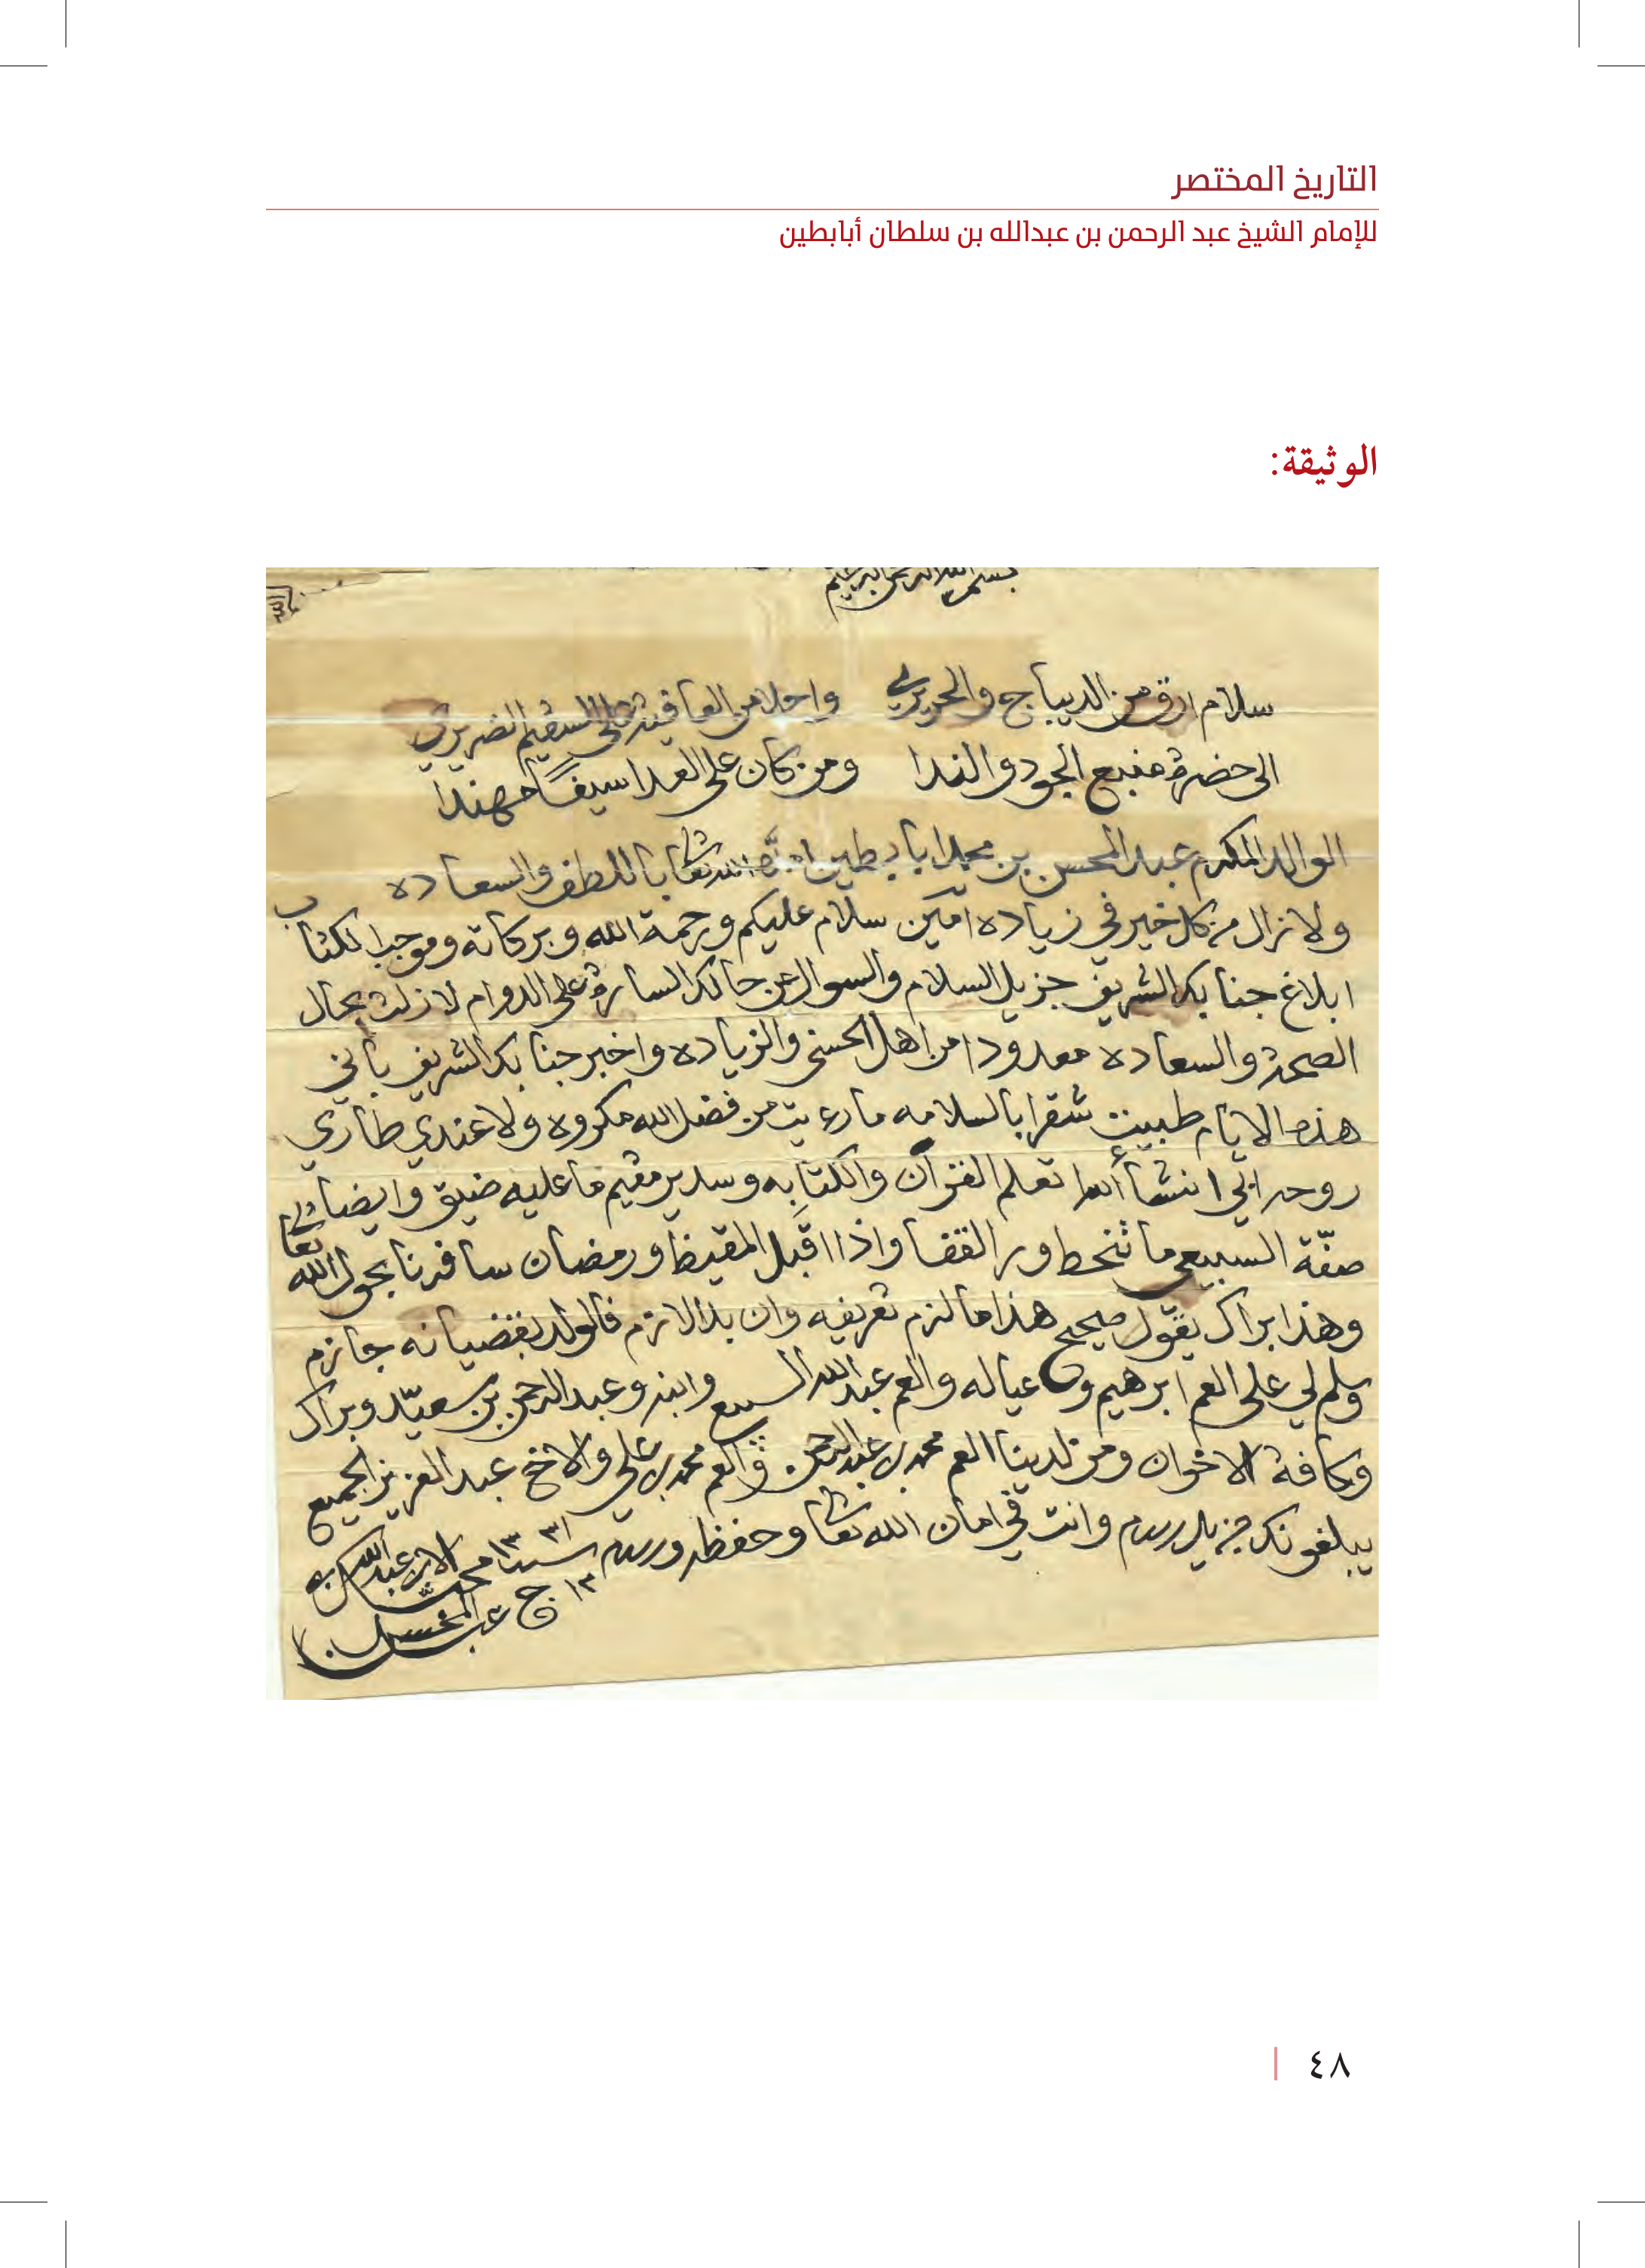 التاريخ المختصر
للإمام الشيخ عبد الرحمن بن عبدالله بن سلطان أبابطين
الوثيقة:
بسم الله الرحمن الرحيم
سلام ارق من الديباج والحريري واحلا من العافية على السقيم الضريري
الى حضرة منبع الجود والندا ومن كان على العدا سيفًا مهندا
الوالد المكرم عبد المحسن بن محمد ابابطين الله تعالى باللطف والسعاده
ولا زال من كل خير في زياده امين سلام عليكم ورحمة الله وبركاته وموجب الكتاب
ابلاغ جنابك الشريف جزيل السلام والسوال عن حالك السارة على الدوام لا زلت بحال
الصحة والسعاده معدودا من اهل الحسنى والزياده واخبر جنابك الشريف باني
هذه الايام طبيت شقرا بالسلامه ما رءيت من فضل الله مكروه ولا عندي طاري
روحه ابي انشأ الله تعلم القرآن والكتابه وسدير مقيم ما عليه ضيق وايضا
صفّة السبيعي ما تنحط ورا القفا واذا اقبل المقيظ ورمضان سافرنا بحول الله تعالى
وهذا براك يقول صحيح هذا ما لزم تعريفه وان بدا لازم فالولد بقضيانه جازم
وسلم لي على العم ابرهيم و عياله والعم عبدالله وابنه وعبدالرحمن بن سعيّد وبراك
وكافة الاخوان ومن لدينا العم محمد بن عبدالرحمن والعم محمد بن علي والاخ عبدالعزيز الجميع
يبلغونك جزيل السلام وانت في امان الله تعالى وحفظه والسلام
الابن عبدالله بن
عبد المحسن
٤٨